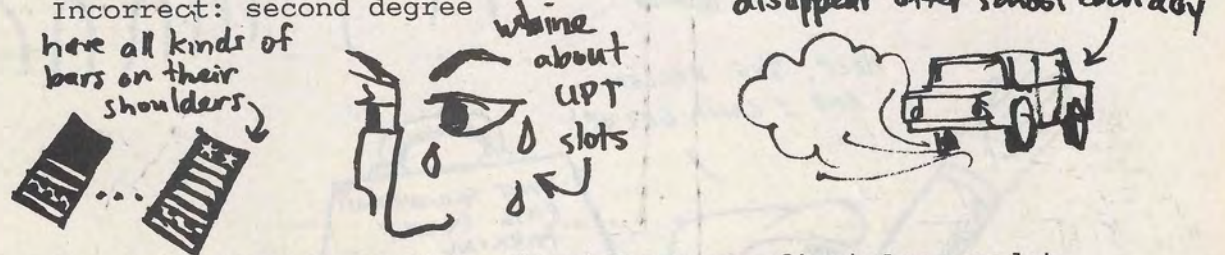 Incorrect: second degree
have all kinds of
bars on their
shoulders
whine
about
UPT
slots
disappear after school each day